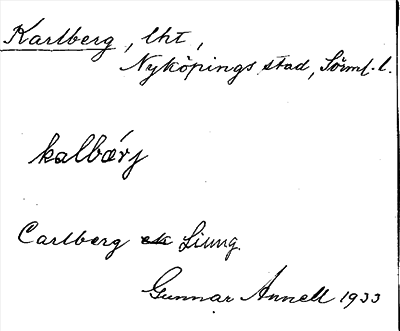 Karlberg, lht,
Nyköpings stad, Sörml. l.
kalbærj
Carlberg Ljung.
Gunnar Annell 1933